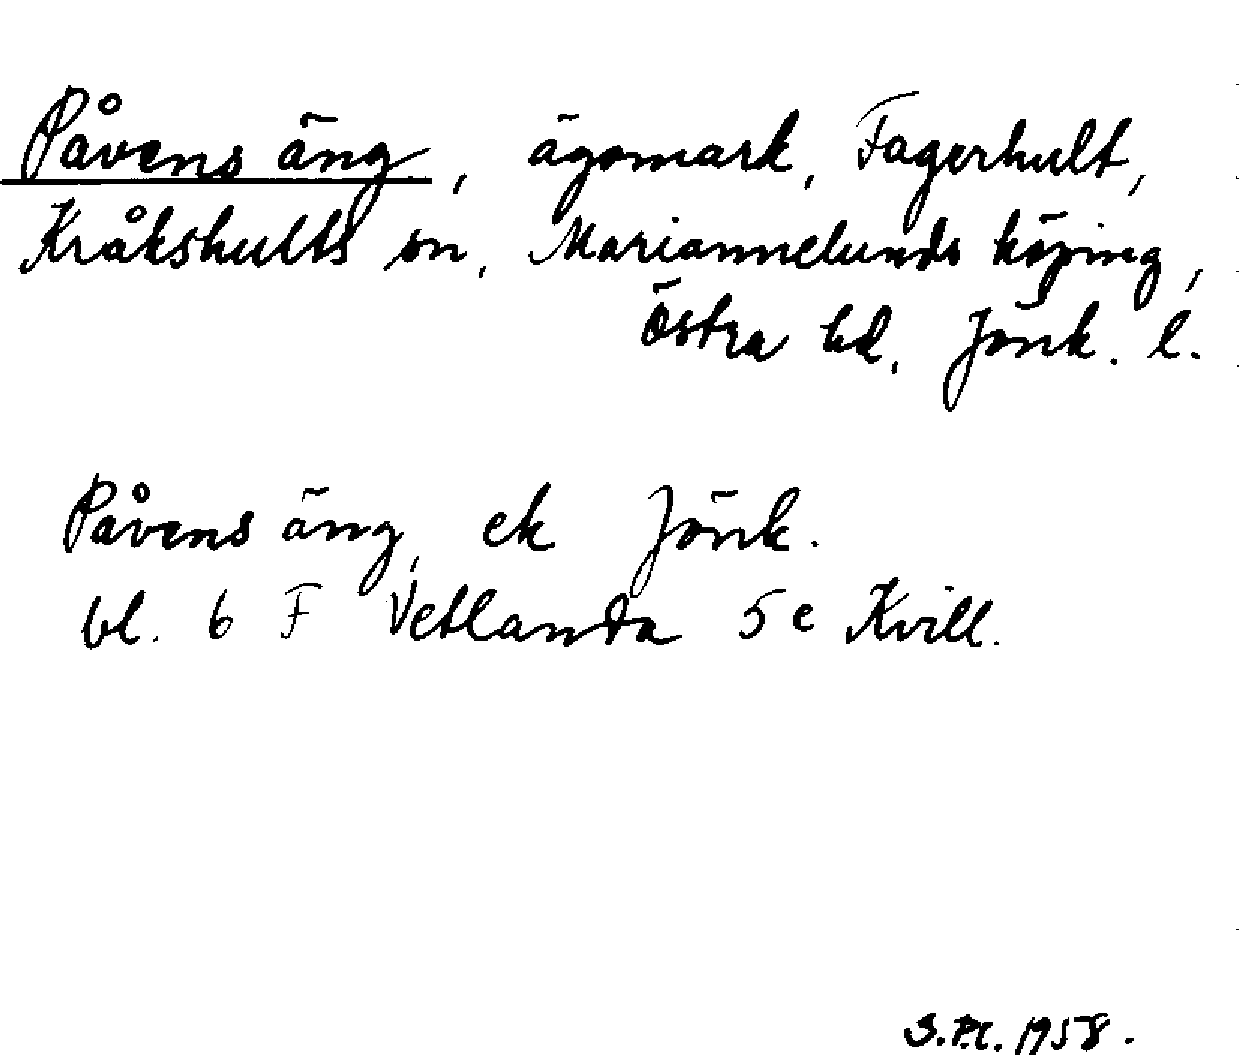 Påvens äng, ägomark, Fagerhult,
Kråkshults sn, Mariannelunds köping,
Östra hd, Jönk. l.
Påvens äng, ek Jönk.
bl. 6 F Vetlanda 5 e Kvill.
1958.